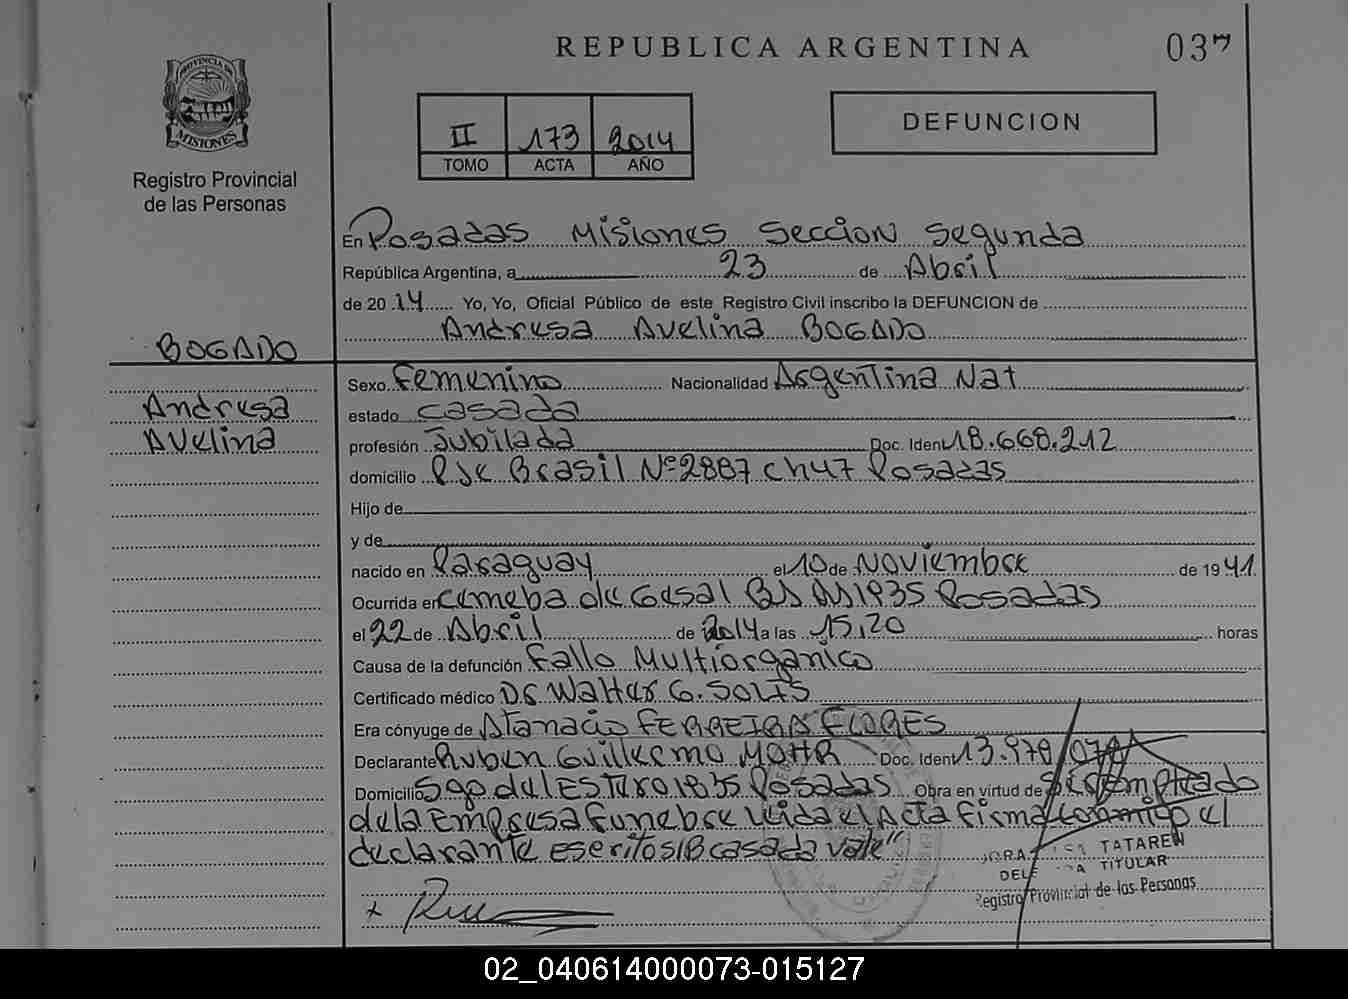 REPUBLICA ARGENTINA
037
PROVINCIA DE
MISIONES
Registro Provincial
de las Personas
II 173 2014
TOMO ACTA AÑO
DEFUNCION
En Posadas Misiones Seccion Segunda
República Argentina, a 23 de Abril
de 2014 Yo, Yo, Oficial Público de este Registro Civil inscribo la DEFUNCION de
Andresa Avelina BOGADO
BOGADO
Andresa
Avelina
Sexo Femenino Nacionalidad Argentina Nat
estado casada
profesión Jubilada Doc. Ident 18.668.212
domicilio Pje Brasil Nº 2887 ch 47 Posadas
Hijo de
y de
nacido en Paraguay el 10 de Noviembre de 1941
Ocurrida en de 1935 Posadas
el 22 de Abril de 2014 a las 15,20 horas
Causa de la defunción Fallo Multiorganico
Certificado médico Dr Walter G. SOLIS
Era cónyuge de Atanacio FERREIRA FLORES
Declarante Ruben Guillermo MOHR Doc. Ident 13.970
Domicilio Sgo del ESTERO 1935 Posadas Obra en virtud de Empleado
de la Empresa Funebre Leida el Acta Firma conmigo el
declarante Escritos/B casada vale"
TATAREN
TITULAR
Registro Provincial de las Personas
x
02_040614000073-015127